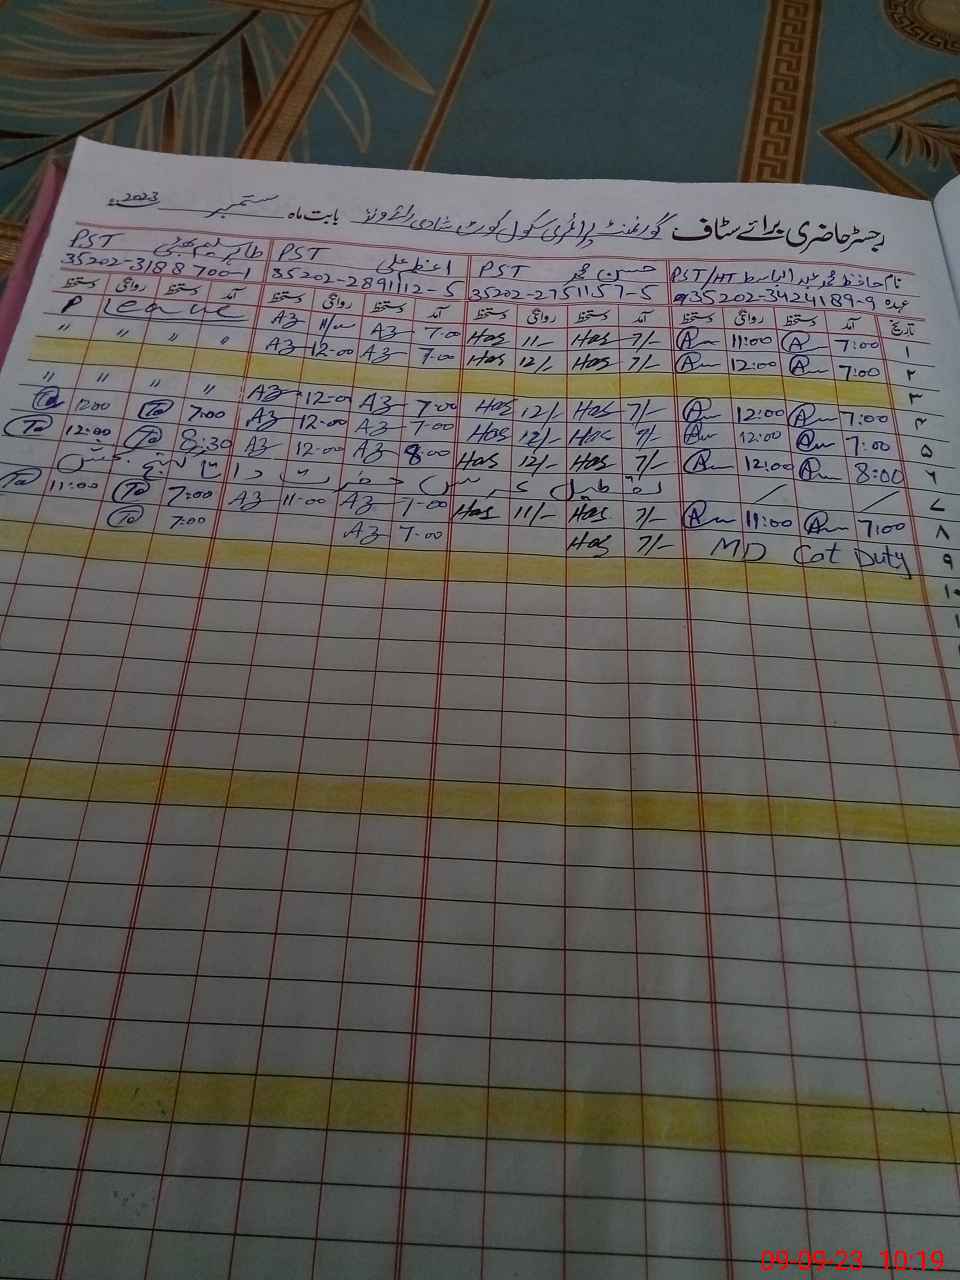 رجسٹر حاضری برائے سٹاف گورنمنٹ پرائمری سکول کورٹ شادی رائے ونڈ بابت ماہ ستمبر 2023ء
نام حافظ محمد PST/HT حسن محمد PST اعظم علی PST طاہر سلیم بھٹی PST
عہدہ 35202-3424189-9 35202-2751157-5 35202-2891112-5 35202-3188700-1
تاریخ آمد دستخط روانگی دستخط آمد دستخط روانگی دستخط آمد دستخط روانگی دستخط آمد دستخط روانگی دستخط
۱ 7:00 11:00 7/- Has 11/- Has 7-00 Az 11/- Az Leave P
۲ 7:00 12:00 7/- Has 12/- Has 7-00 Az 12-00 Az " " " "
۳
۴ 7:00 12:00 7/- Has 12/- Has 7-00 Az 12-00 Az " " " "
۵ 7:00 12:00 7/- Has 12/- Has 7-00 Az 12-00 Az 7:00 To 12:00 To
۶ 8:00 12:00 7/- Has 12/- Has 8:00 Az 12-00 Az 8:30 To 12:00 To
۷ / / تعطیل عرس حضرت داتا گنج بخش
۸ 7:00 11:00 7/- Has 11/- Has 7-00 Az 11-00 Az 7:00 To 11:00 To
۹ MD Cat Duty 7/- Has 7-00 Az 7:00 To
۱۰
09-09-23 10:19